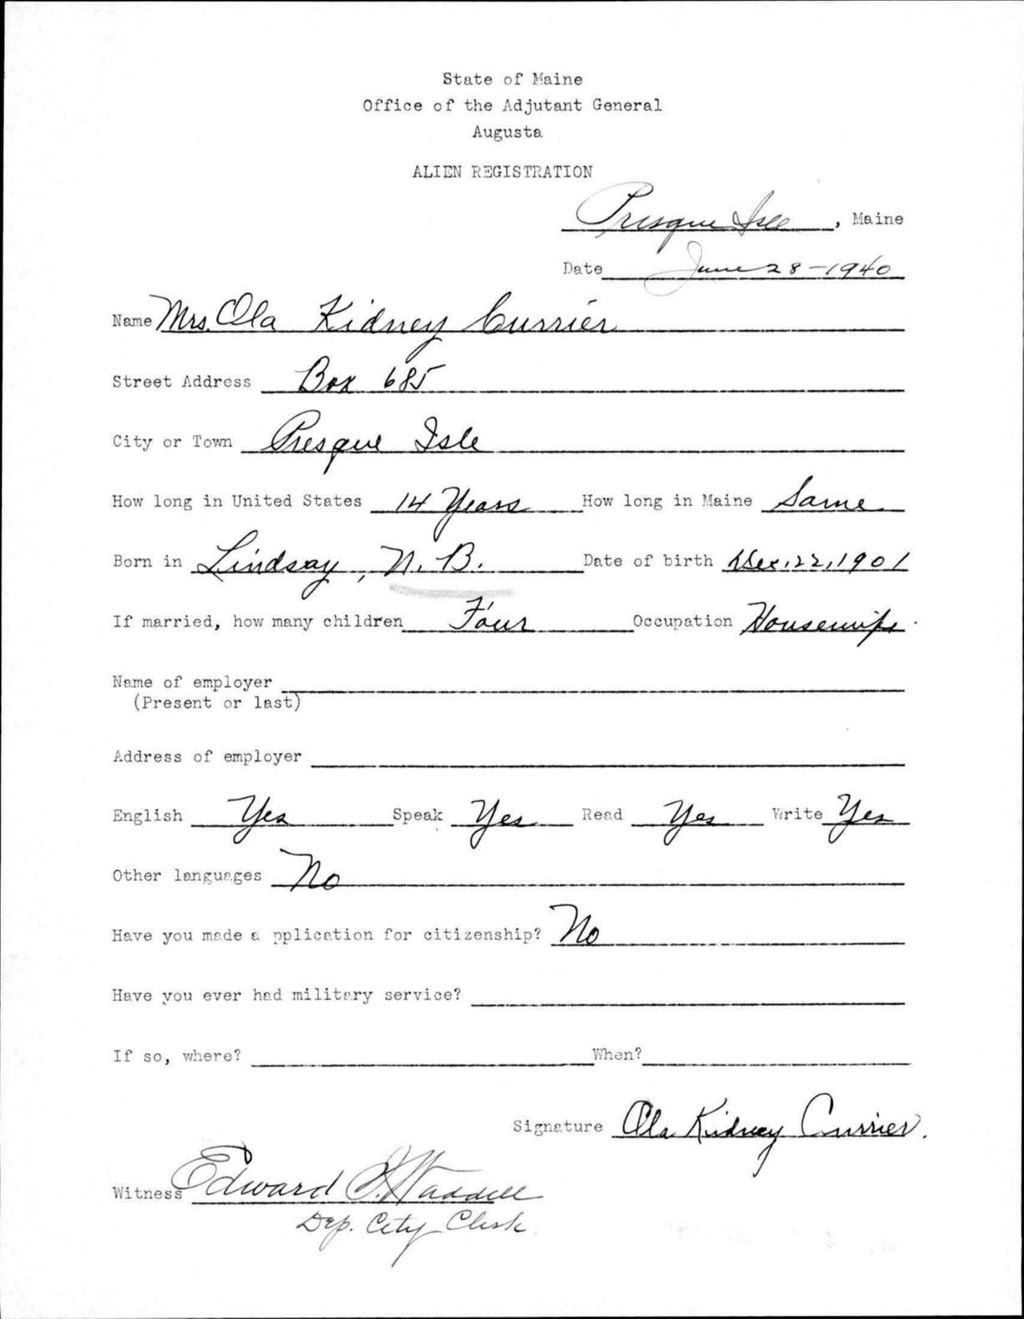 State of Maine
Office of the Adjutant General
Augusta
ALIEN REGISTRATION
Presque Isle, Maine
Date June 28-1940
Name Mrs. Ola Kidney Currier
Street Address Box 685
City or Town Presque Isle
How long in United States 14 Years How long in Maine Same
Born in Lindsay, N. B. Date of birth Dec. 22, 1901
If married, how many children Four Occupation Housewife.
Name of employer
(Present or last)
Address of employer
English Yes Speak Yes Read Yes Write Yes
Other languages No
Have you made a pplication for citizenship? No
Have you ever had military service?
If so, where? When?
Signature Ola Kidney Currier.
Witness Edward I. Waddell
Dep. City Clerk